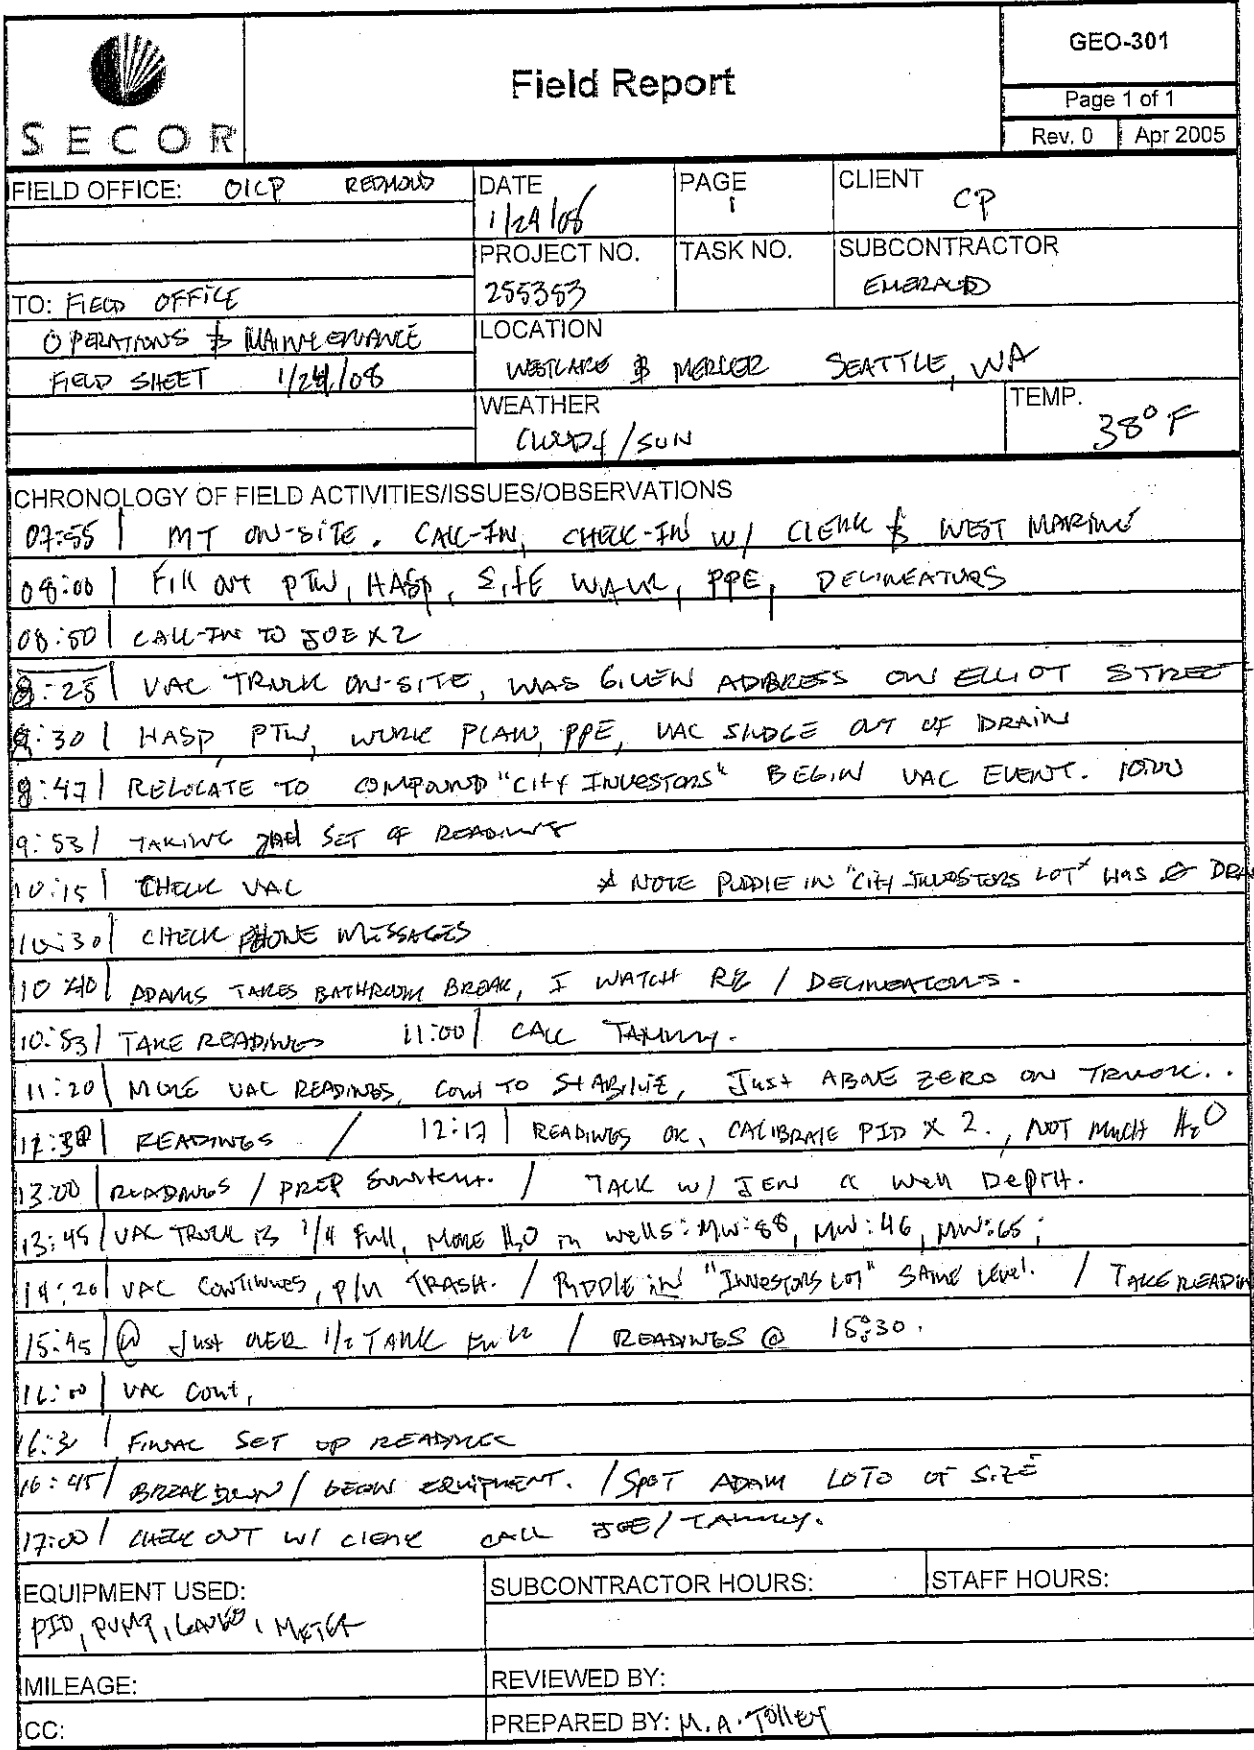 GEO-301
Field Report
Page 1 of 1
SECOR
Rev. 0 Apr 2005
FIELD OFFICE: OICP REDMOND
DATE 1/24/08
PAGE 1
CLIENT CP
PROJECT NO. 255353
TASK NO.
SUBCONTRACTOR EMERALD
TO: FIELD OFFICE
OPERATIONS & MAINTENANCE
FIELD SHEET 1/24/08
LOCATION
WESTLAKE & MERCER SEATTLE, WA
WEATHER
CLOUDY/SUN
TEMP. 38° F
CHRONOLOGY OF FIELD ACTIVITIES/ISSUES/OBSERVATIONS
07:55 | MT ON-SITE. CALL-IN, CHECK-IN W/ CLERK & WEST MARINE
08:00 | Fill OUT PTW, HASP, SITE WALK, PPE, DELINEATORS
08:50 | CALL-IN TO JOE X2
8:25 | VAC TRUCK ON-SITE, WAS GIVEN ADDRESS ON ELLIOT STREET
8:30 | HASP, PTW, WORK PLAN, PPE, VAC SLUDGE OUT OF DRAIN
8:47 | RELOCATE TO COMPOUND "CITY INVESTORS" BEGIN VAC EVENT. 10:00
9:53 | TAKING 2nd SET OF READINGS
10:15 | CHECK VAC * NOTE PUDDLE IN "CITY INVESTORS LOT" HAS DRA
10:30 | CHECK PHONE MESSAGES
10:40 | ADAMS TAKES BATHROOM BREAK, I WATCH / DELINEATORS.
10:53 | TAKE READINGS 11:00 | CALL TAMMY.
11:20 | MORE VAC READINGS, CONT TO STABILIZE, JUST ABOVE ZERO ON TRUCK..
READINGS / 12:17 | READINGS OK, CALIBRATE PID X 2., NOT MUCH H2O
13:00 | READINGS / PREP / TALK W/ JEN Well DEPTH.
13:45 | VAC TRUCK IS 1/4 Full, MORE H2O in wells: MW:88, MW:46, MW:65;
14:20 | VAC CONTINUES, P/U TRASH. / PUDDLE IN "INVESTORS LOT" SAME LEVEL. / TAKE READIN
15:45 | @ JUST OVER 1/2 TANK Full / READINGS @ 15:30.
16:00 | VAC CONT,
16:3 | FINAL SET OF READINGS
16:45 | BREAK DOWN / EQUIPMENT. / SPOT ADAM OF SITE
17:00 | CHECK OUT W/ CLERK CALL JOE/TAMMY.
EQUIPMENT USED:
PID, PUMP, METER
SUBCONTRACTOR HOURS:
STAFF HOURS:
MILEAGE:
REVIEWED BY:
CC:
PREPARED BY: M.A. Tolley